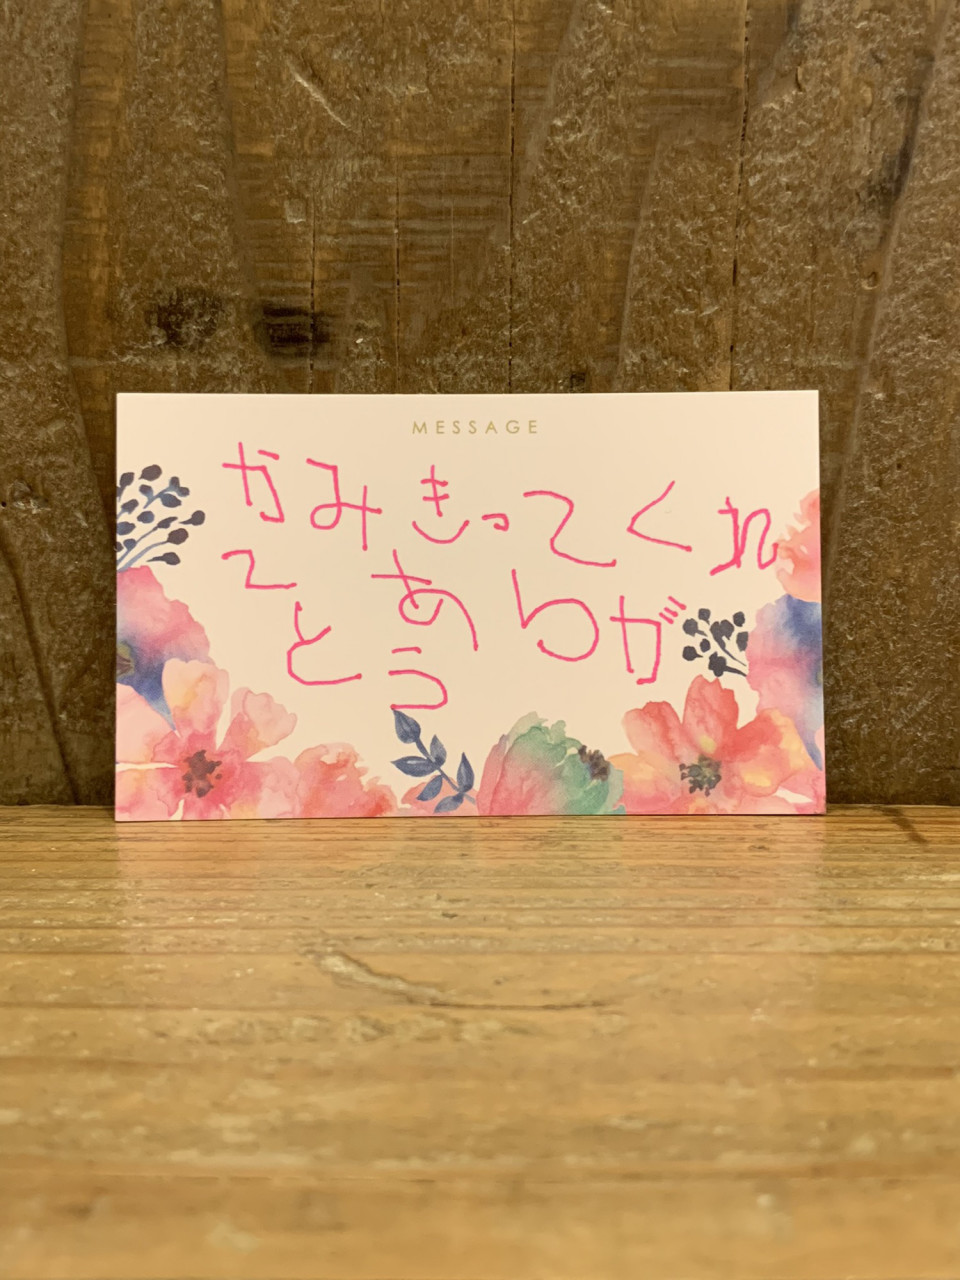 MESSAGE
かみきってくれ
てありが
とう